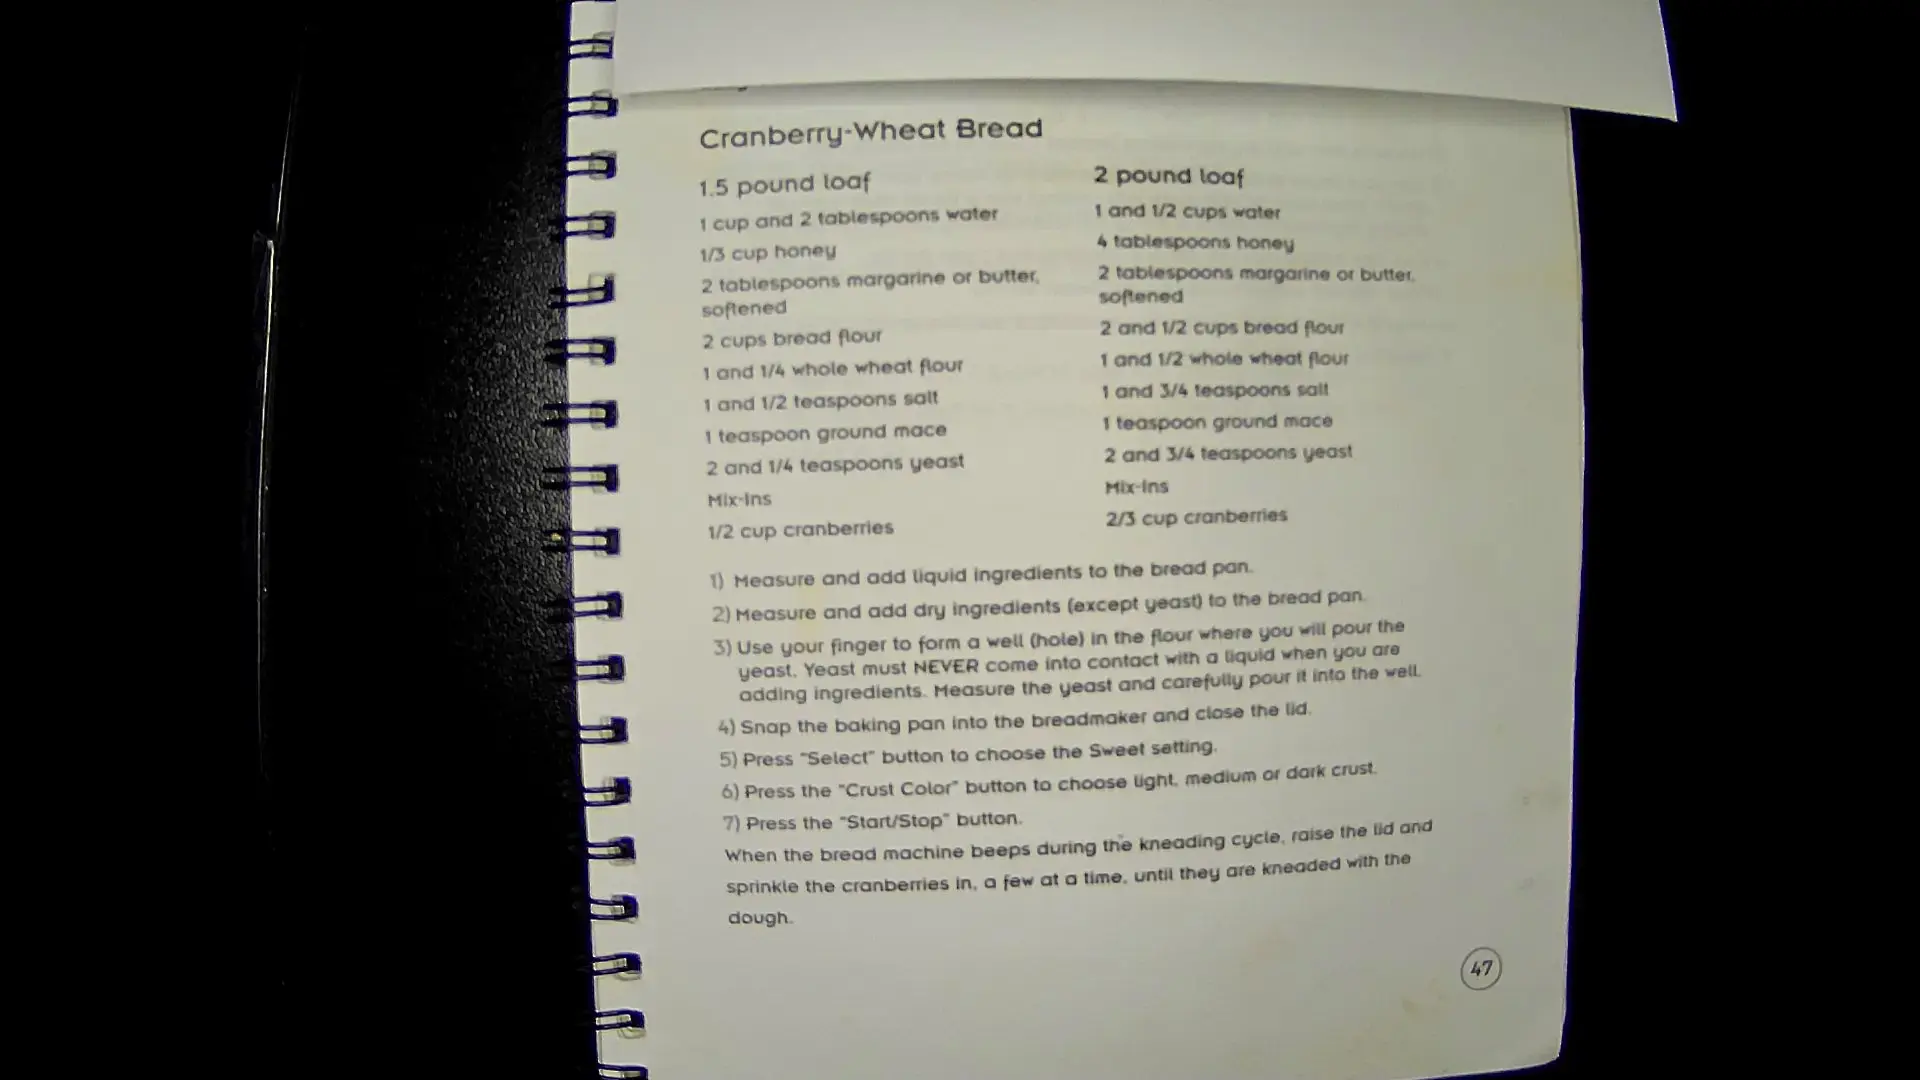 Cranberry-Wheat Bread
1.5 pound loaf
1 cup and 2 tablespoons water
1/3 cup honey
2 tablespoons margarine or butter,
softened
2 cups bread flour
1 and 1/4 whole wheat flour
1 and 1/2 teaspoons salt
1 teaspoon ground mace
2 and 1/4 teaspoons yeast
Mix-Ins
1/2 cup cranberries
2 pound loaf
1 and 1/2 cups water
4 tablespoons honey
2 tablespoons margarine or butter,
softened
2 and 1/2 cups bread flour
1 and 1/2 whole wheat flour
1 and 3/4 teaspoons salt
1 teaspoon ground mace
2 and 3/4 teaspoons yeast
Mix-Ins
2/3 cup cranberries
1) Measure and add liquid ingredients to the bread pan.
2) Measure and add dry ingredients (except yeast) to the bread pan.
3) Use your finger to form a well (hole) in the flour where you will pour the
yeast. Yeast must NEVER come into contact with a liquid when you are
adding ingredients. Measure the yeast and carefully pour it into the well.
4) Snap the baking pan into the breadmaker and close the lid.
5) Press "Select" button to choose the Sweet setting.
6) Press the "Crust Color" button to choose light, medium or dark crust.
7) Press the "Start/Stop" button.
When the bread machine beeps during the kneading cycle, raise the lid and
sprinkle the cranberries in, a few at a time, until they are kneaded with the
dough.
47